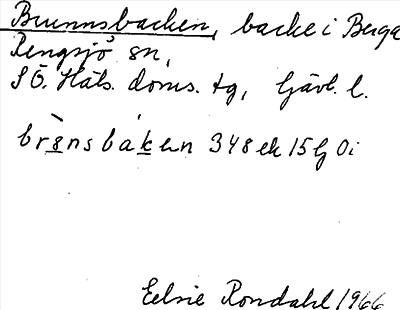 Brunnsbacken, backe i Berga
Rengsjö sn,
SÖ. Häls. doms. tg, Gävl. l.
brønsbaken 348 ek 15 G Oi
Eelsie Rondahl 1966